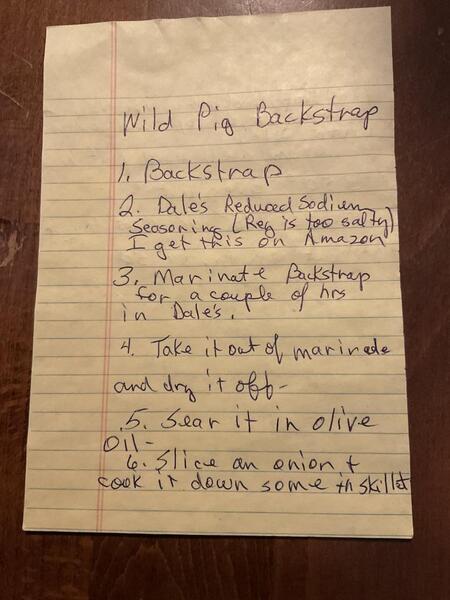 Wild Pig Backstrap
1. Backstrap
2. Dale's Reduced Sodium
Seasoring (Reg is too salty)
I get this on Amazon
3. Marinate Backstrap
for a couple of hrs
in Dale's.
4. Take it out of marinade
and dry it off-
5. Sear it in olive
oil-
6. Slice an onion +
cook it down some in skillet